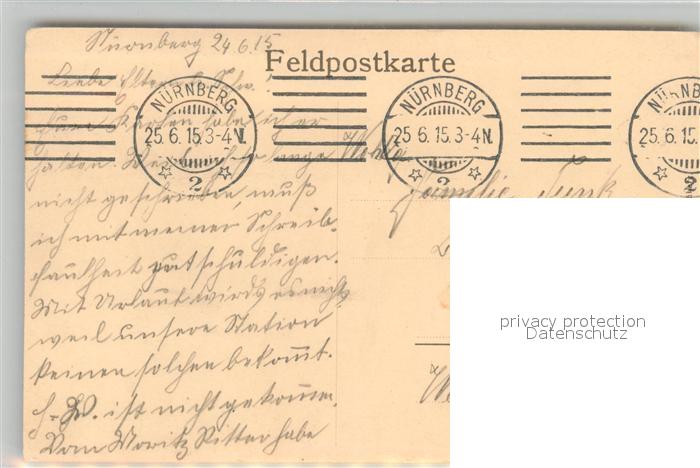 Nürnberg 24.6.15
Feldpostkarte
Liebe Eltern
NÜRNBERG
25.6.15.3-4N.
2
NÜRNBERG
25.6.15.3-4N.
2
NÜRNBERG
25.6.15.
2
Eure Karten habe ich er
halten. lange
Familie
nicht geschrieben muß
ich mit meiner Schreib-
faulheit entschuldigen.
Mit Urlaub wirds es nichts
weil unsere Station
keinen solchen bekommt.
ist nicht gekommen.
Vom Moritz Ritter habe
privacy protection
Datenschutz